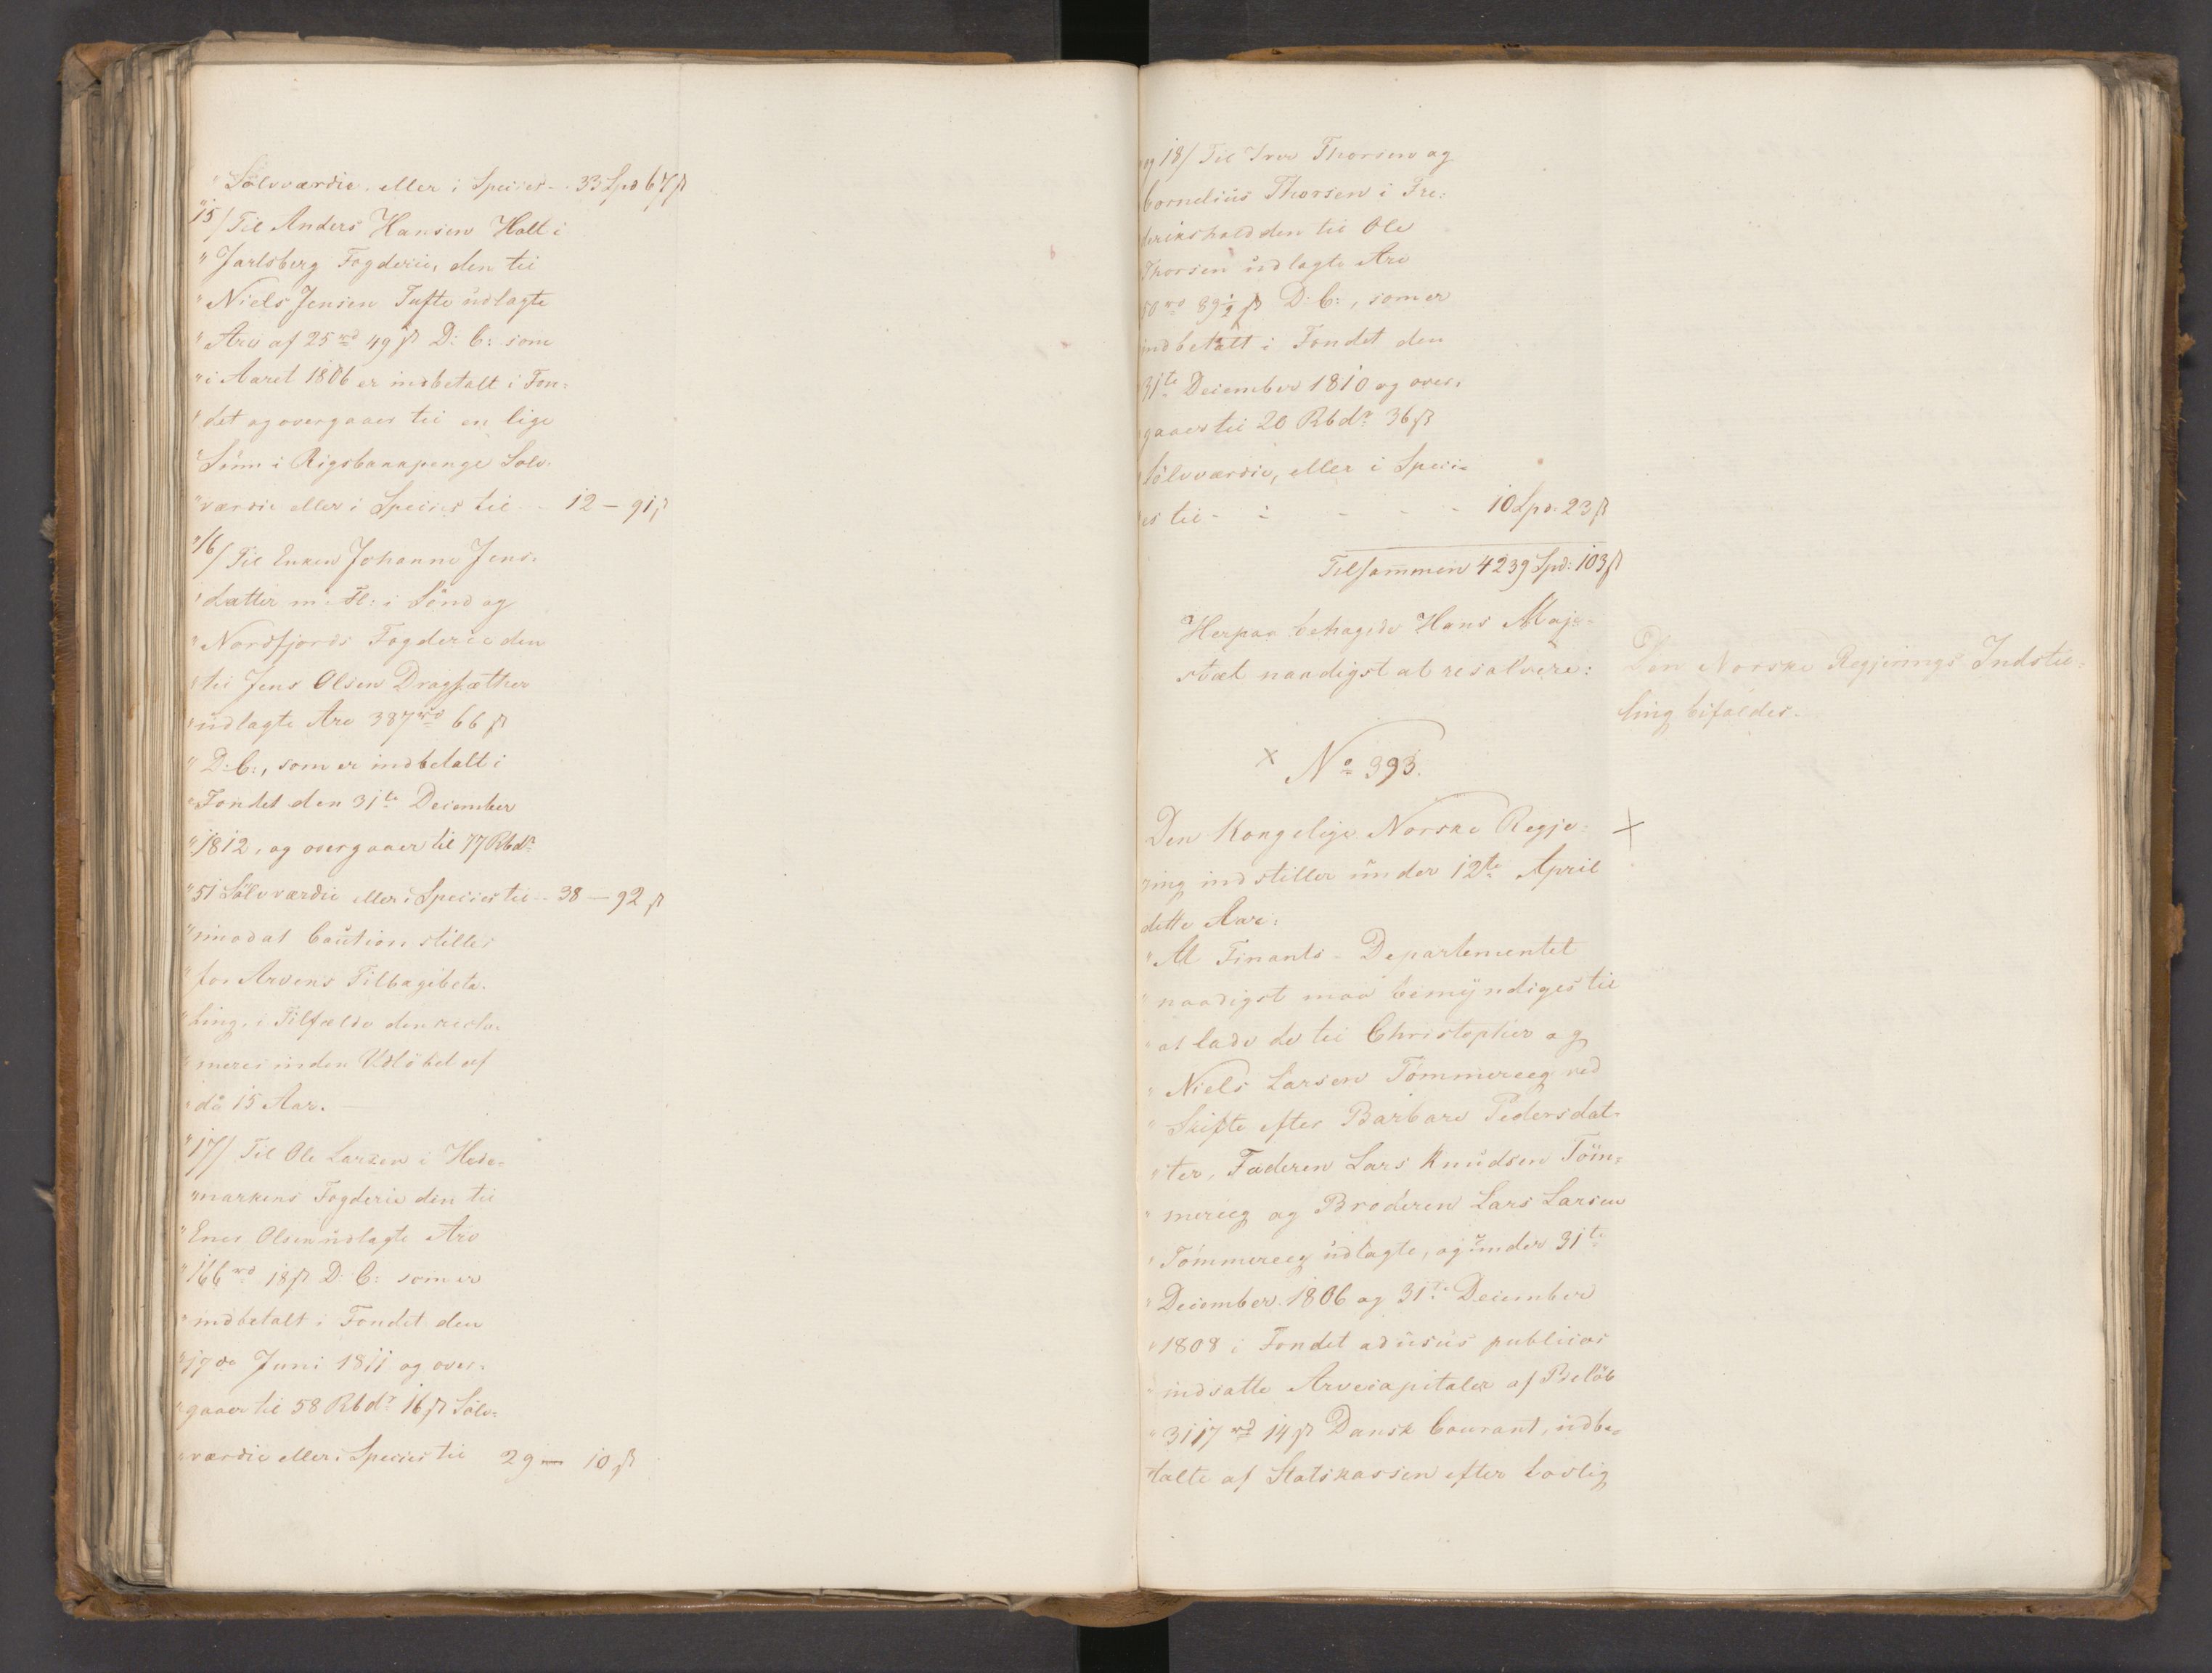 "Sölvværdie. eller i Species - - 33 Spd 67 ß
"15/ Til Anders Hansen Holt i
"Jarlsberg Fogderie, den til
"Niels Jensen Tufte udlagte
"Arv af 25 rd 49 ß D: C: som
"i Aaret 1806 er indbetalt i Fon=
"det og overgaaer til en lige
"Sum i Rigsbankpenge Sölv-
"værdie eller i Species til - - 12 - 91 ß
"16/ Til Enken Johanne Jens-
"datter m: Fl: i Sönd og
"Nordfjords Fogderie den
"til Jens Olsen Dragsæther
"udlagte Arv 387 rd 66 ß
"D: C:, som er indbetalt i
"Fondet den 31te December
"1812, og overgaaer til 77 Rbdr
"51 Sölvværdie eller i Species til - - 38 - 92 ß
"imod at Caution stilles
"for Arvens Tilbagebeta-
"ling, i Tilfælde den recla-
"meres inden Udlöbet af
"da 15 Aar. -
"17/ Til Ole Larsen i Hede-
"markens Fogderie den til
"Olsen udlagte Arv
"166 rd 18 ß D: C: som er
"indbetalt i Fondet den
"17de Juni 1811 og over-
"gaaer til 58 Rbdr 16 ß Sölv=
"værdie eller i Species til 29 - 10 ß
"og 18/ Til Iver Thorsen og
Cornelius Thorsen i Fre=
derikshald den til Ole
Thorsen udlagte Arv
50 rd 89 1/2 ß D: C:, som er
indbetalt i Fondet den
31te December 1810 og over-
gaaer til 20 Rbdr 36 ß
Sölvværdie, eller i Speci=
es til - - - - - 10 Spd. 23 ß
Tilsammen 4239 Spd: 103 ß
Herpaa behagede Hans Maje-
stæt naadigst at resolvere:
Den Norske Regjerings Indstil=
ling bifaldes.
× No 393.
Den Kongelige Norske Regje= ×
ring indstiller under 12te April
dette Aar:
"At Finants-Departementet
"naadigst maa bemyndiges til
"at lade de til Christopher og
"Niels Larsen Tömmereeg ved
"Skifte efter Barbare Pedersdat-
"ter, Faderen Lars Knudsen Töm=
"mereeg og Broderen Lars Larsen
"Tömmereeg udlagte, og under 31te
"December 1806 og 31te December
"1808 i Fondet ad usus publicos
"indsatte Arvecapitaler af Belöb
"3117 rd 14 ß Dansk Courant, udbe=
"talte af Statskassen efter lovlig